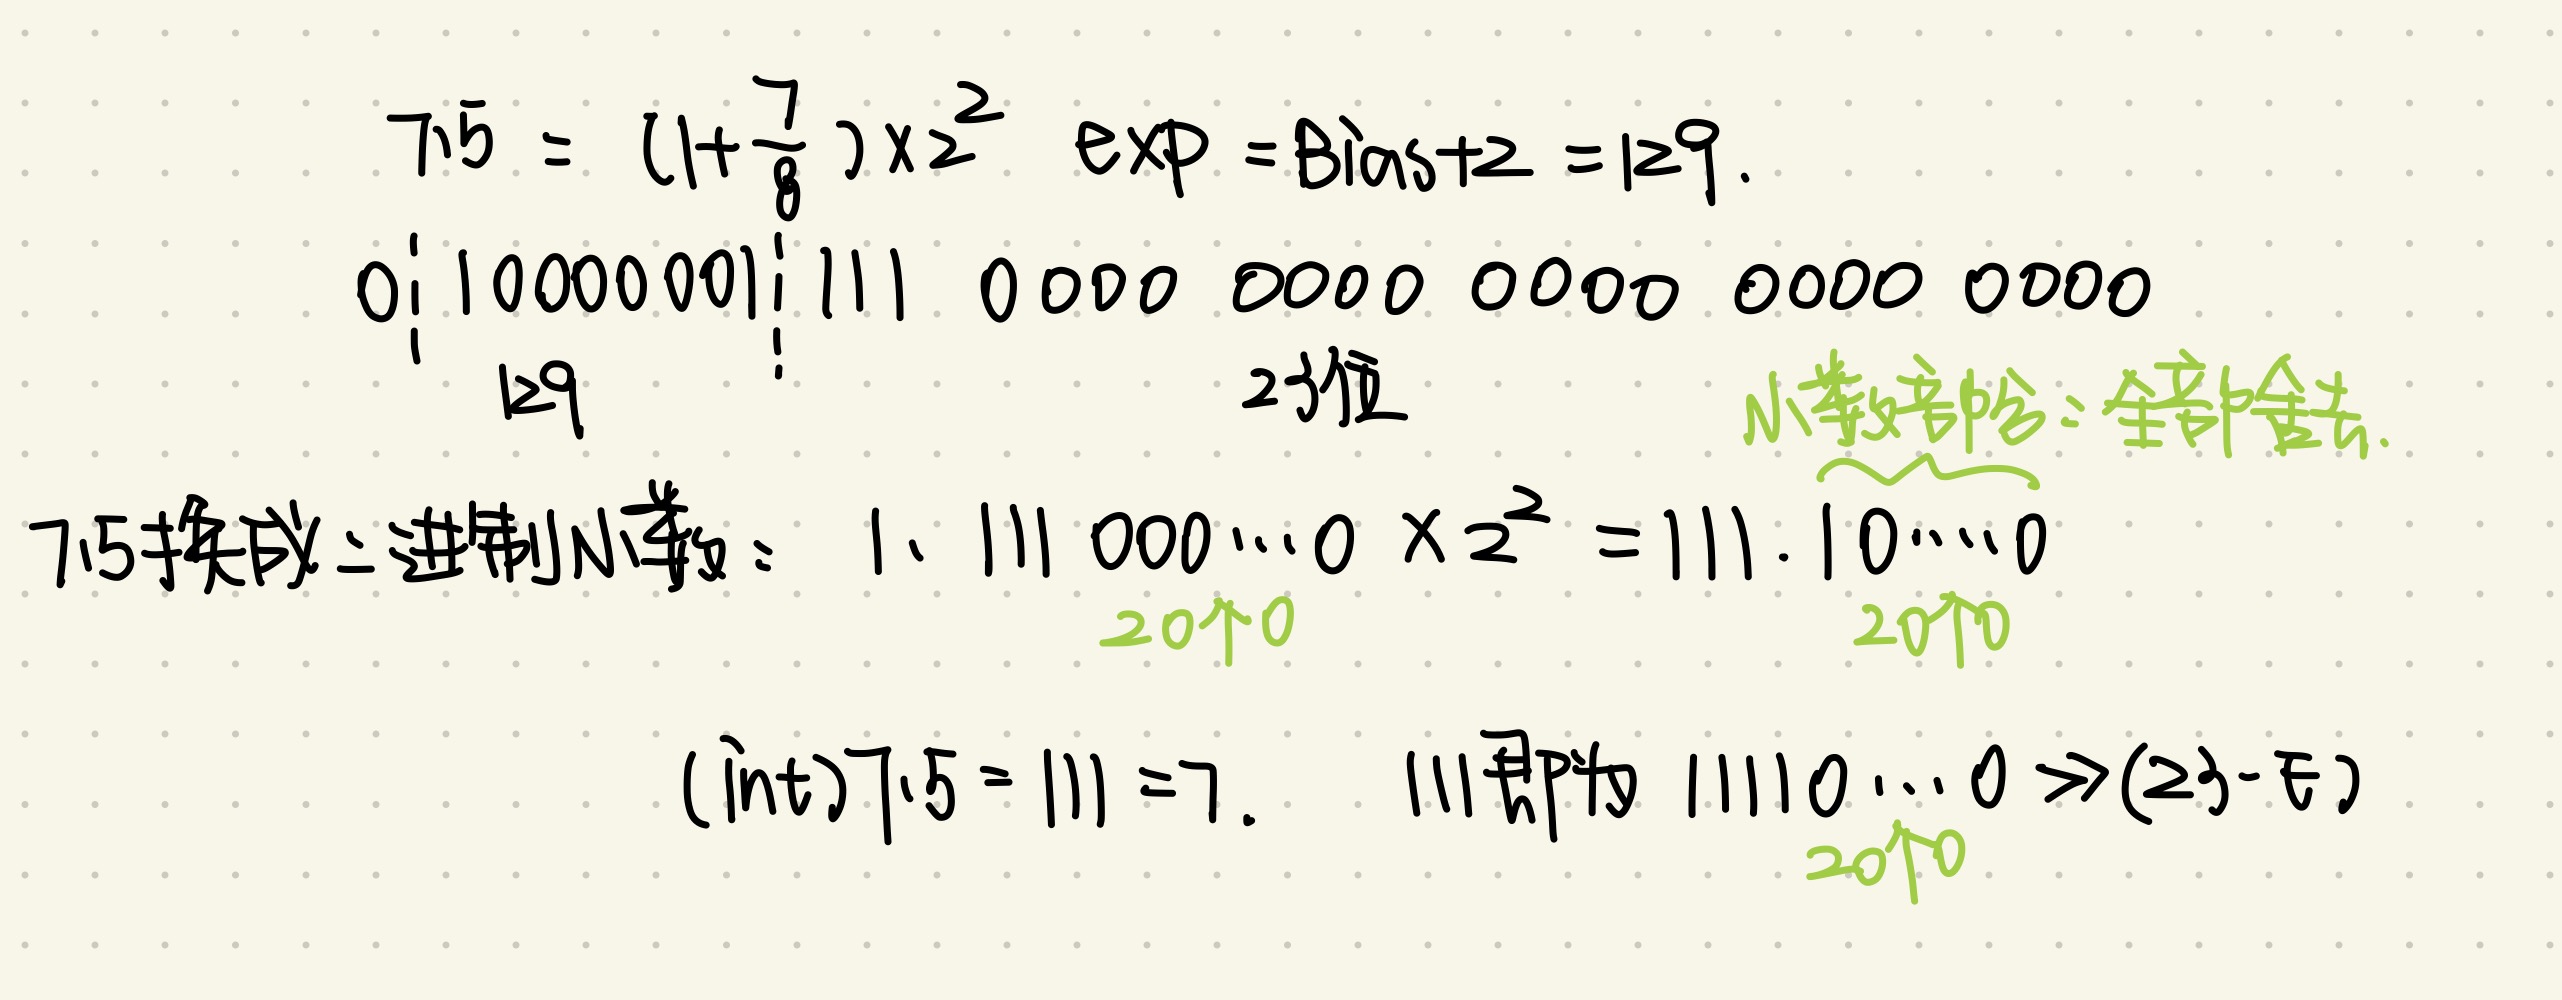 7.5 = (1+7/8)×2² exp = Bias+2 = 129.
0 10000001 111 0000 0000 0000 0000 0000
129 23位
小数部分：全部舍去.
7.5换成二进制小数： 1.111000...0 × 2² = 111.10...0
20个0 20个0
(int)7.5 = 111 = 7. 111即为 11110...0 >> (23-E)
20个0